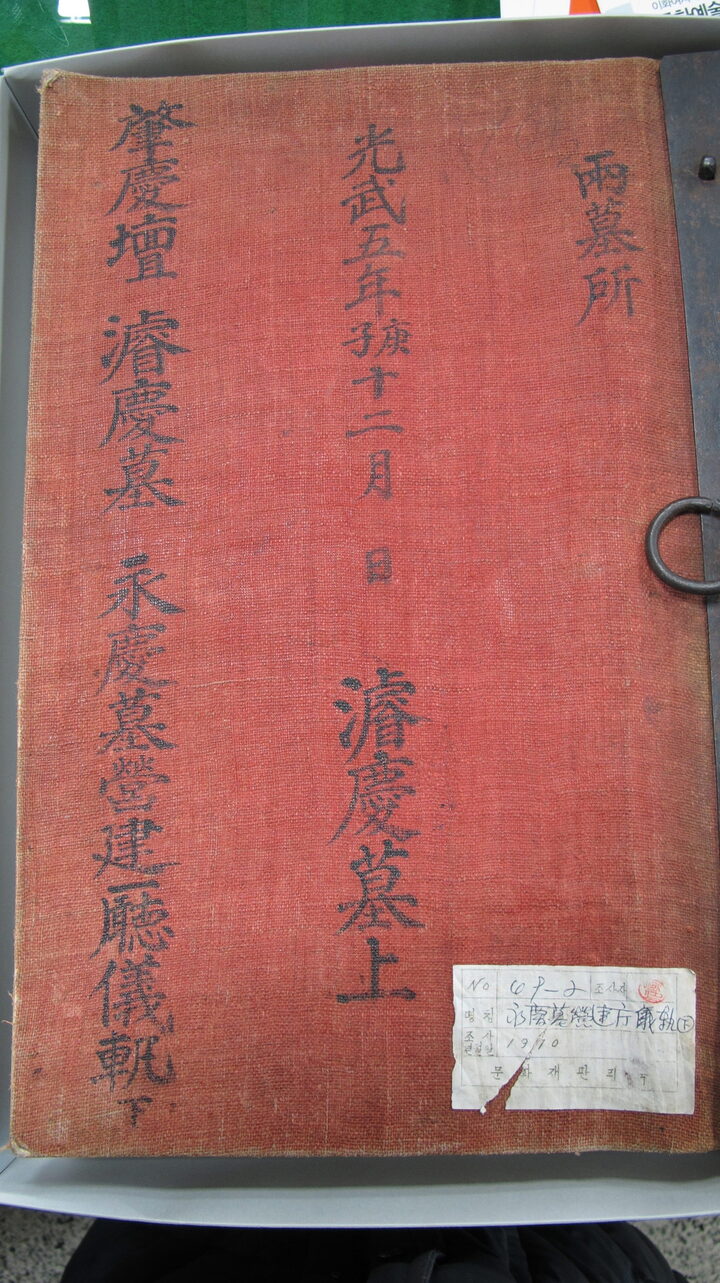 兩墓所
光武五年庚子十二月 日 濬慶墓上
肇慶壇 濬慶墓 永慶墓營建廳儀軌 下
No 69-2 조사자
명칭 永慶墓營建庁儀軌(下)
조사년월일 1970
문화재관리국